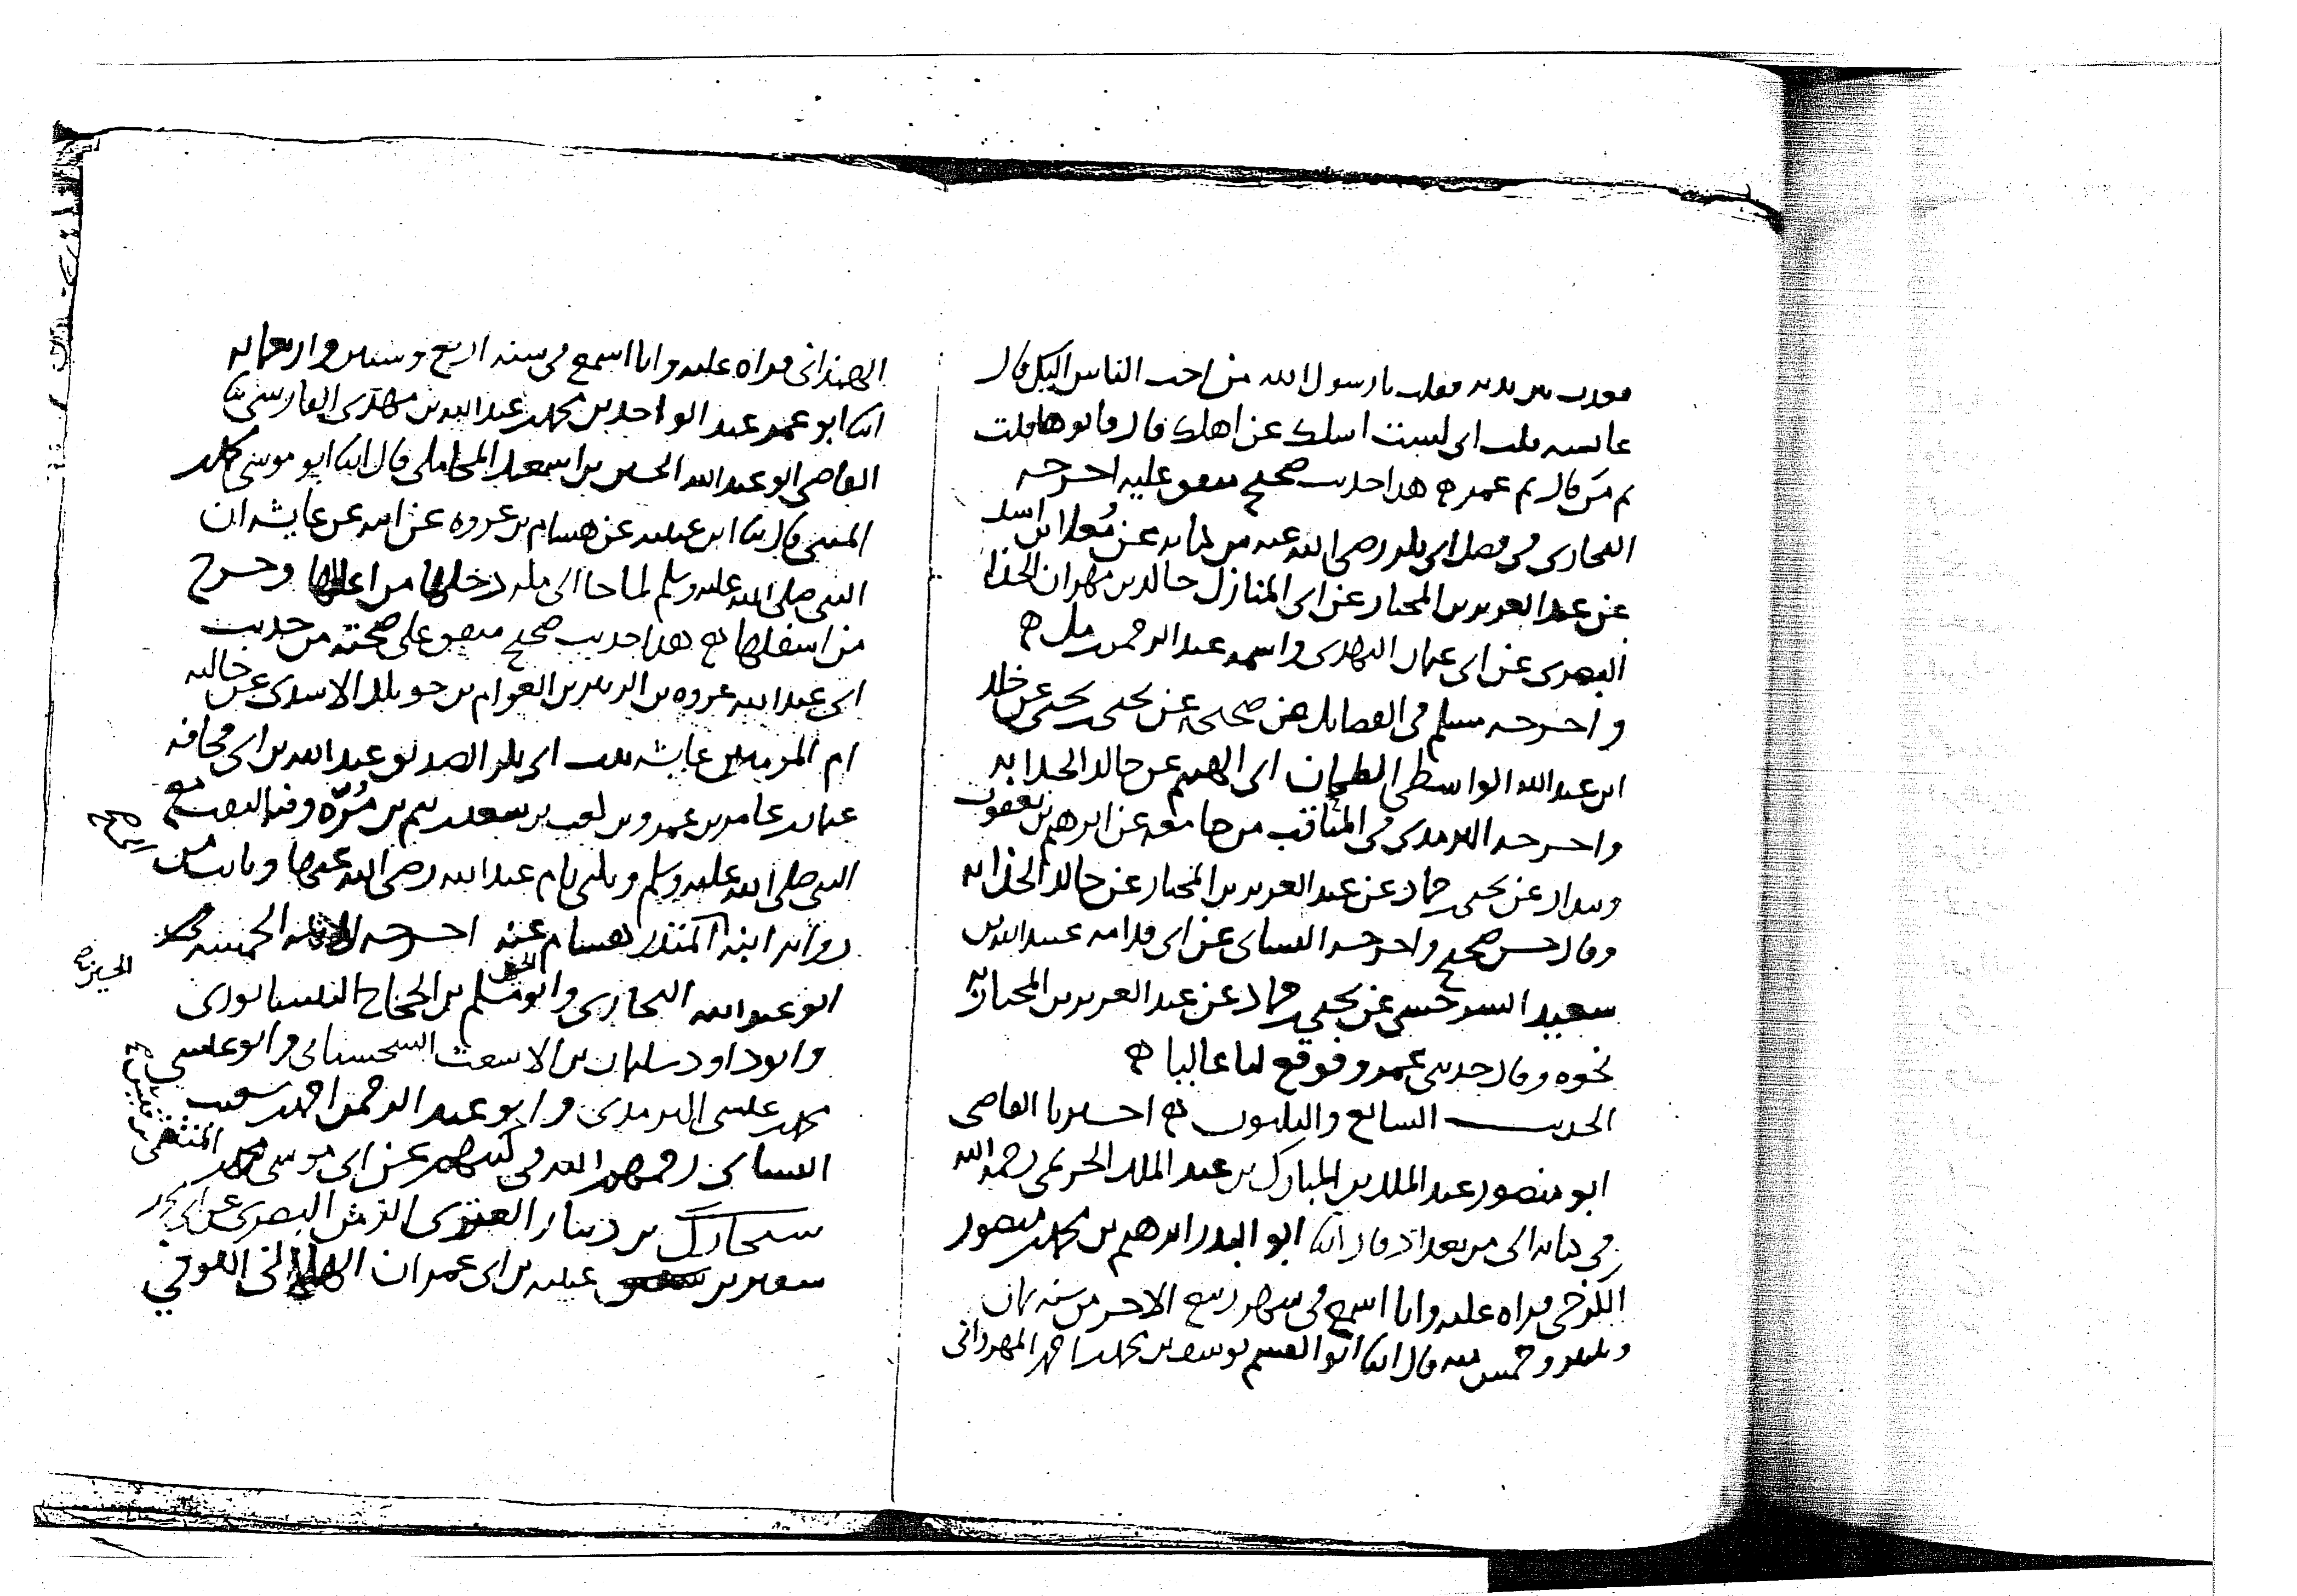 فعدت بين يديه فقلت يا رسول الله من احب الناس اليك قال
عايشه قلت اني لست اسلك عن اهلك قال فابوها قلت
ثم من قال ثم عمر هذا حديث صحيح متفق عليه اخرجه
البخاري في فضل ابي بكر رضي الله عنه من كتابه عن مُعلا بن اسد
عن عبد العزيز بن المختار عن ابي المنازل خالد بن مهران الحذا
البصري عن ابي عثمان النهدي واسمه عبد الرحمن بن مل
واخرجه مسلم في الفضايل من صحيحه عن يحيى بن يحيى عن خلد
ابن عبد الله الواسطي الطحان ابي الهيثم عن خالد الحذا به
واخرجه الترمذي في المناقب من جامعه عن ابرهيم بن يعقوب
وبندار عن يحيى بن حماد عن عبد العزيز بن المختار عن خالد الحذا به
وقال حسن صحيح واخرجه النسائي عن ابي قدامه عبيد الله بن
سعيد السرخسي عن يحيى بن حماد عن عبد العزيز بن المختار به
نحوه وقال حدثني عمرو فوقع لنا عاليا
الحديث السابع والثلثون اخبرنا القاضي
ابو منصور عبد الملك بن المبارك بن عبد الملك الحريمي رحمه الله
في كتابه الي من بغداد قال انبا ابو البدر ابرهيم بن محمد بن منصور
الكرخي قراه عليه وانا اسمع في شهر ربيع الاخر من سنه ثمان
وثلثين وخمس مئه قال انبا ابو القسم يوسف بن محمد بن احمد المهرواني
الهمذاني قراه عليه وانا اسمع في سنه اربع وستين واربعمايه
انبا ابو عمر عبد الواحد بن محمد بن عبد الله بن مهدي الفارسي ثنا
القاضي ابو عبد الله الحسين بن اسمعيل المحاملي قال انبا ابو موسى محمد بن
المثنى قال ثنا ابن عيينه عن هشام بن عروه عن ابيه عن عايشه ان
النبي صلى الله عليه وسلم لما جا الى مكه دخلها من اعلاها وخرج
من اسفلها هذا حديث صحيح متفق على صحته من حديث
ابي عبد الله عروه بن الزبير بن العوام بن خويلد الاسدي عن خالته
ام المومنين عايشه بنت ابي بكر الصديق عبد الله بن ابي قحافه
عثمان بن عامر بن عمرو بن كعب بن سعد بن تيم بن مُرّه وفيه التقت مع
النبي صلى الله عليه وسلم وتكنى بام عبد الله رضي الله عنها وثابت من
صح
روايه ابنه المنذر هشام عنه اخرجه الايمه الخمسه محمد
ابو عبد الله البخاري وابو الحسين مسلم بن الحجاج النيسابوري
الحسين صح
وابو داود سليمان بن الاشعث السجستاني وابو عيسى
محمد بن عيسى الترمذي وابو عبد الرحمن احمد بن شعيب
النسائي رحمهم الله في كتبهم عن ابي موسى محمد بن المثنى
بن عبيد بن قيس بن دينار العنزي الزمن البصري عن ابي محمد
سفين بن عيينه بن ابي عمران الهلالي الكوفي